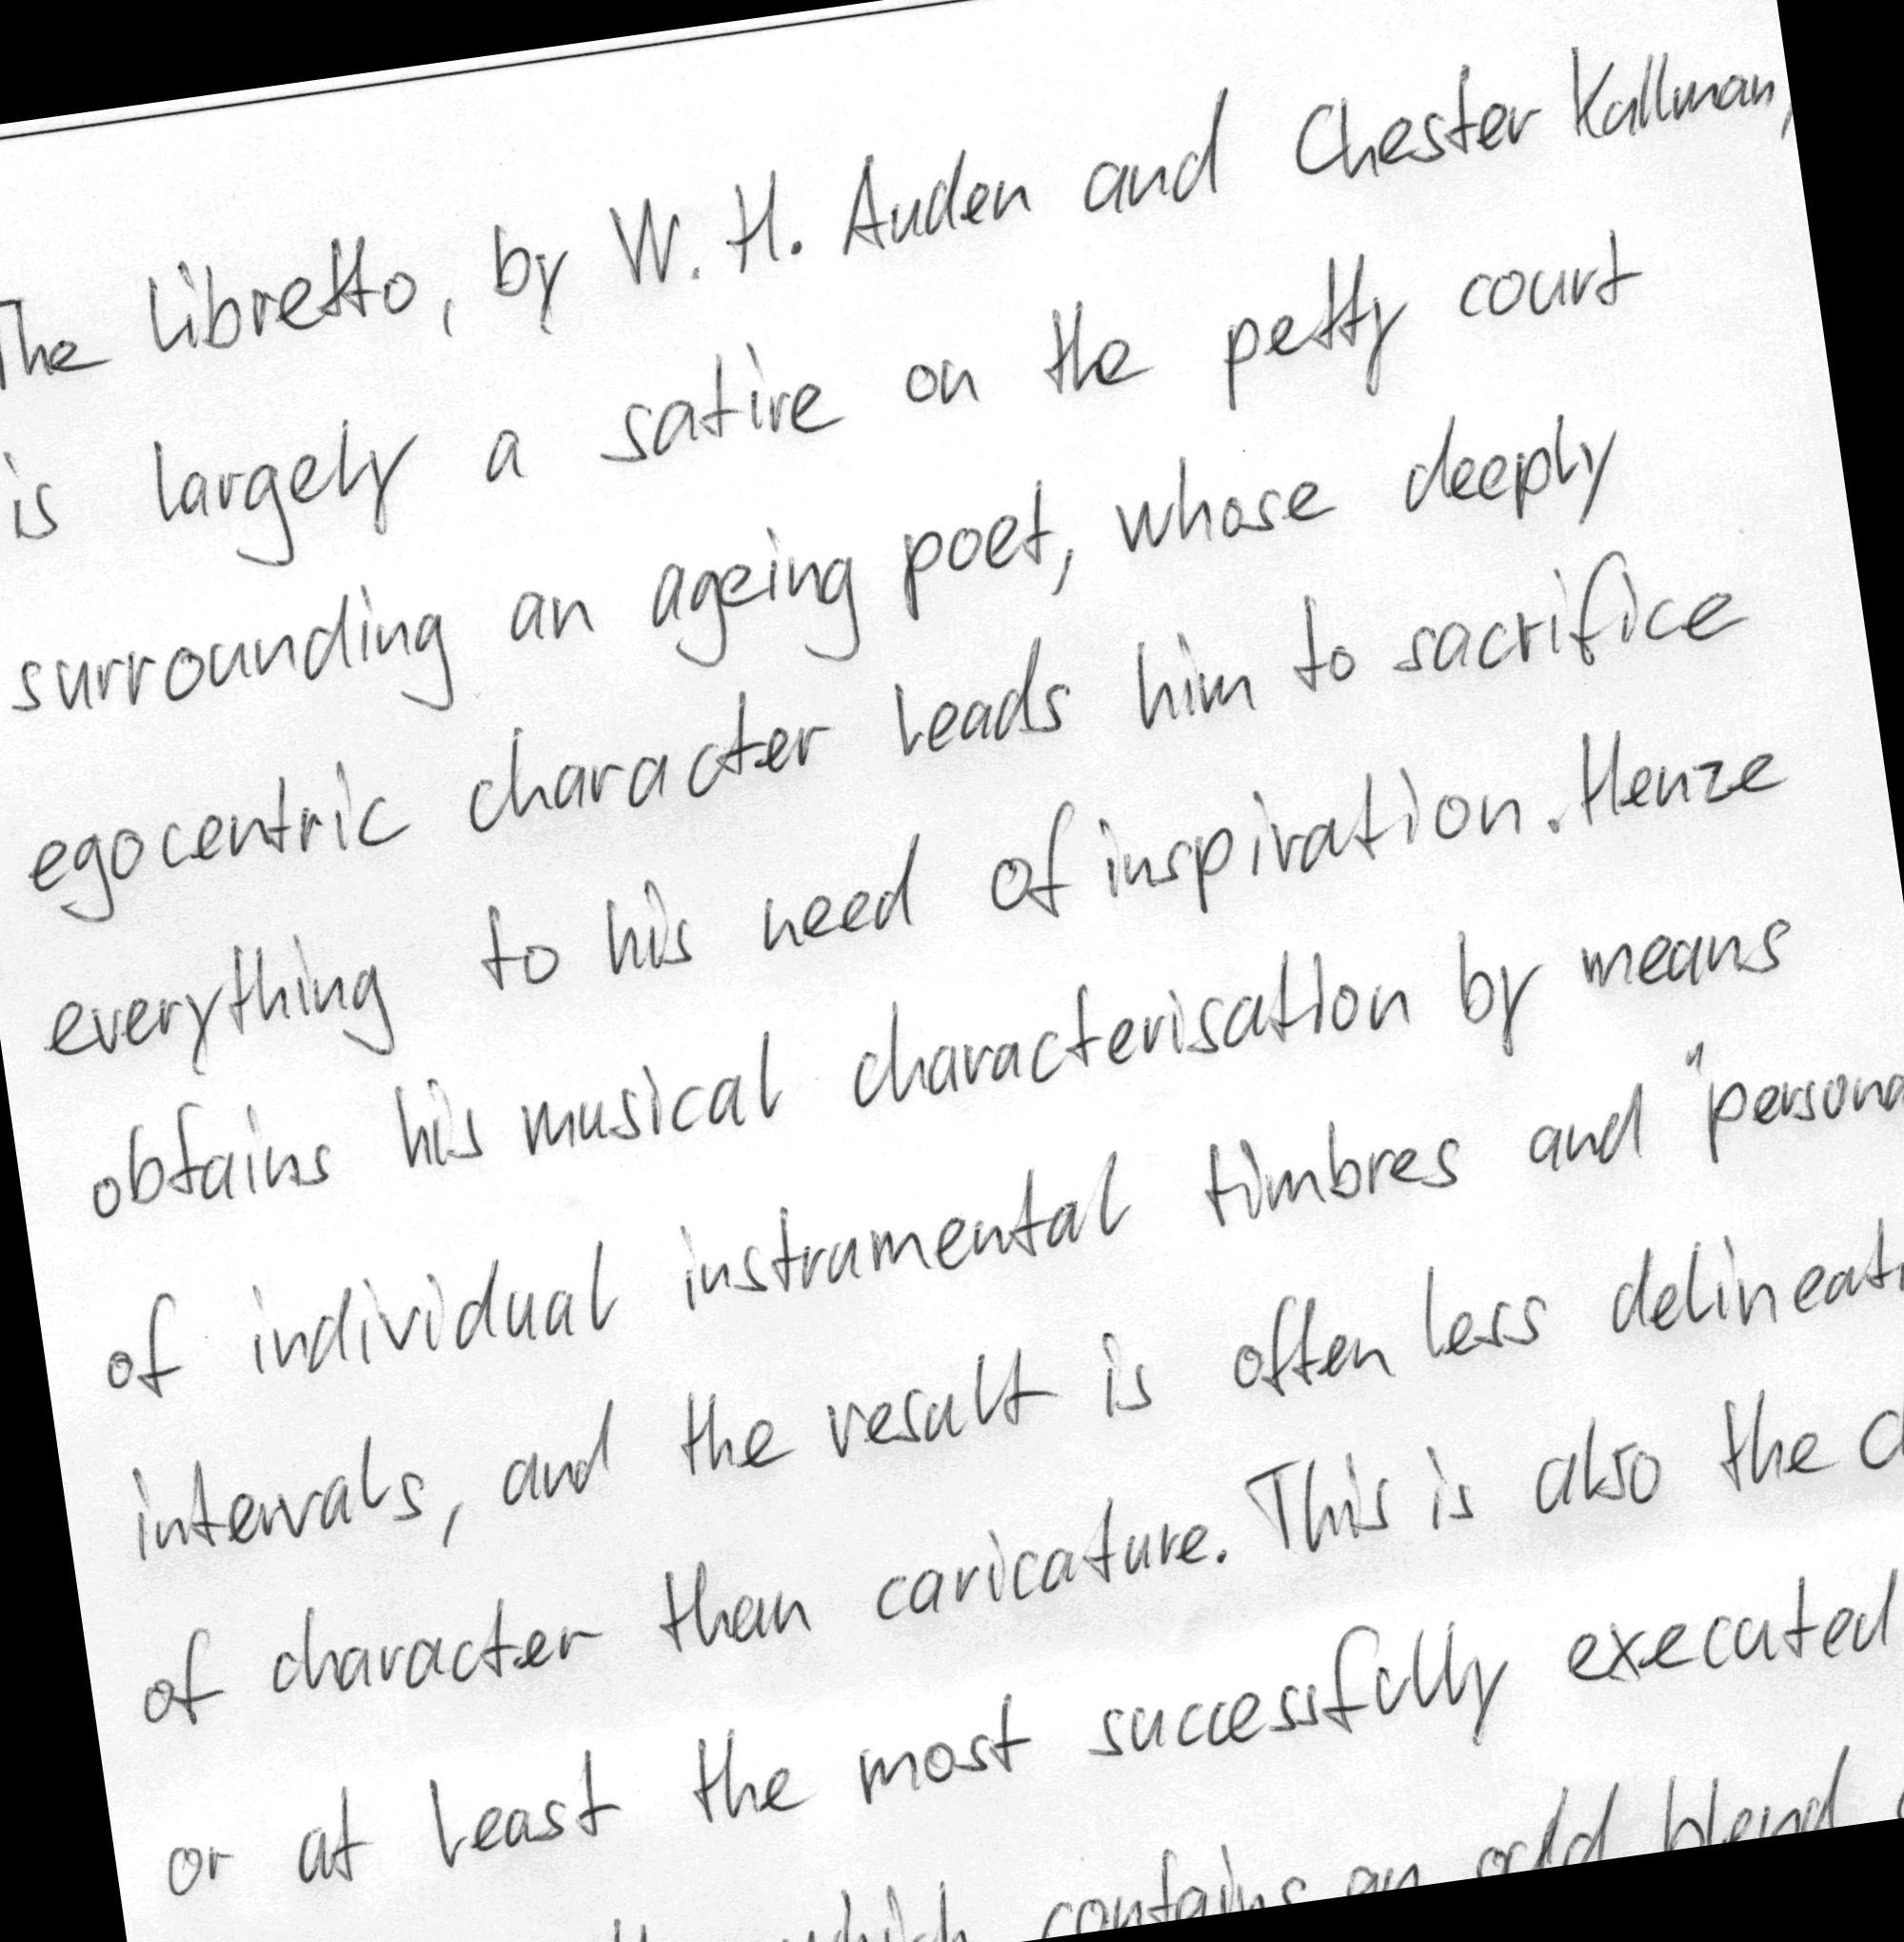 The libretto, by W. H. Auden and Chester Kallman,
is largely a satire on the petty court
surrounding an ageing poet, whose deeply
egocentric character leads him to sacrifice
everything to his need of inspiration. Henze
obtains his musical characterisation by means
of individual instrumental timbres and "persona
intervals, and the result is often less delineati
of character than caricature. This is also the
or at least the most successfully executed
which contains an odd blend